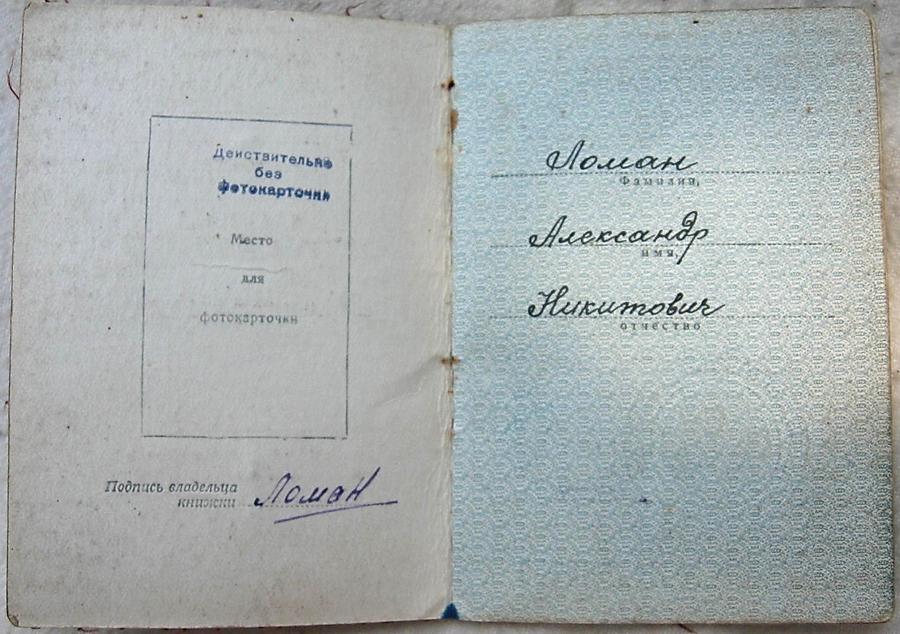 Действительно
без
фотокарточки
Место
для
фотокарточки
Подпись владельца
книжки Ломан
Ломан
Фамилия,
Александр
имя,
Никитович
отчество